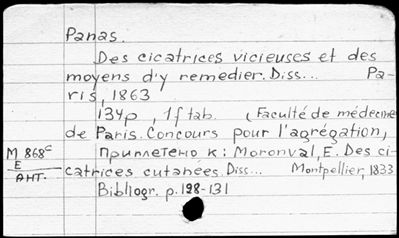 Panas.
Des cicatrices vicieuses et des
moyens d'y remedier. Diss... Pa-
ris, 1863
134p, 1f tab. (Faculté de médecine
de Paris. Concours pour l'agrégation,
Приплетено к: Moronval, E. Des ci-
M 868c
E
АНТ.
catrices cutanées. Diss... Montpellier, 1833
Bibliogr. p. 128-131